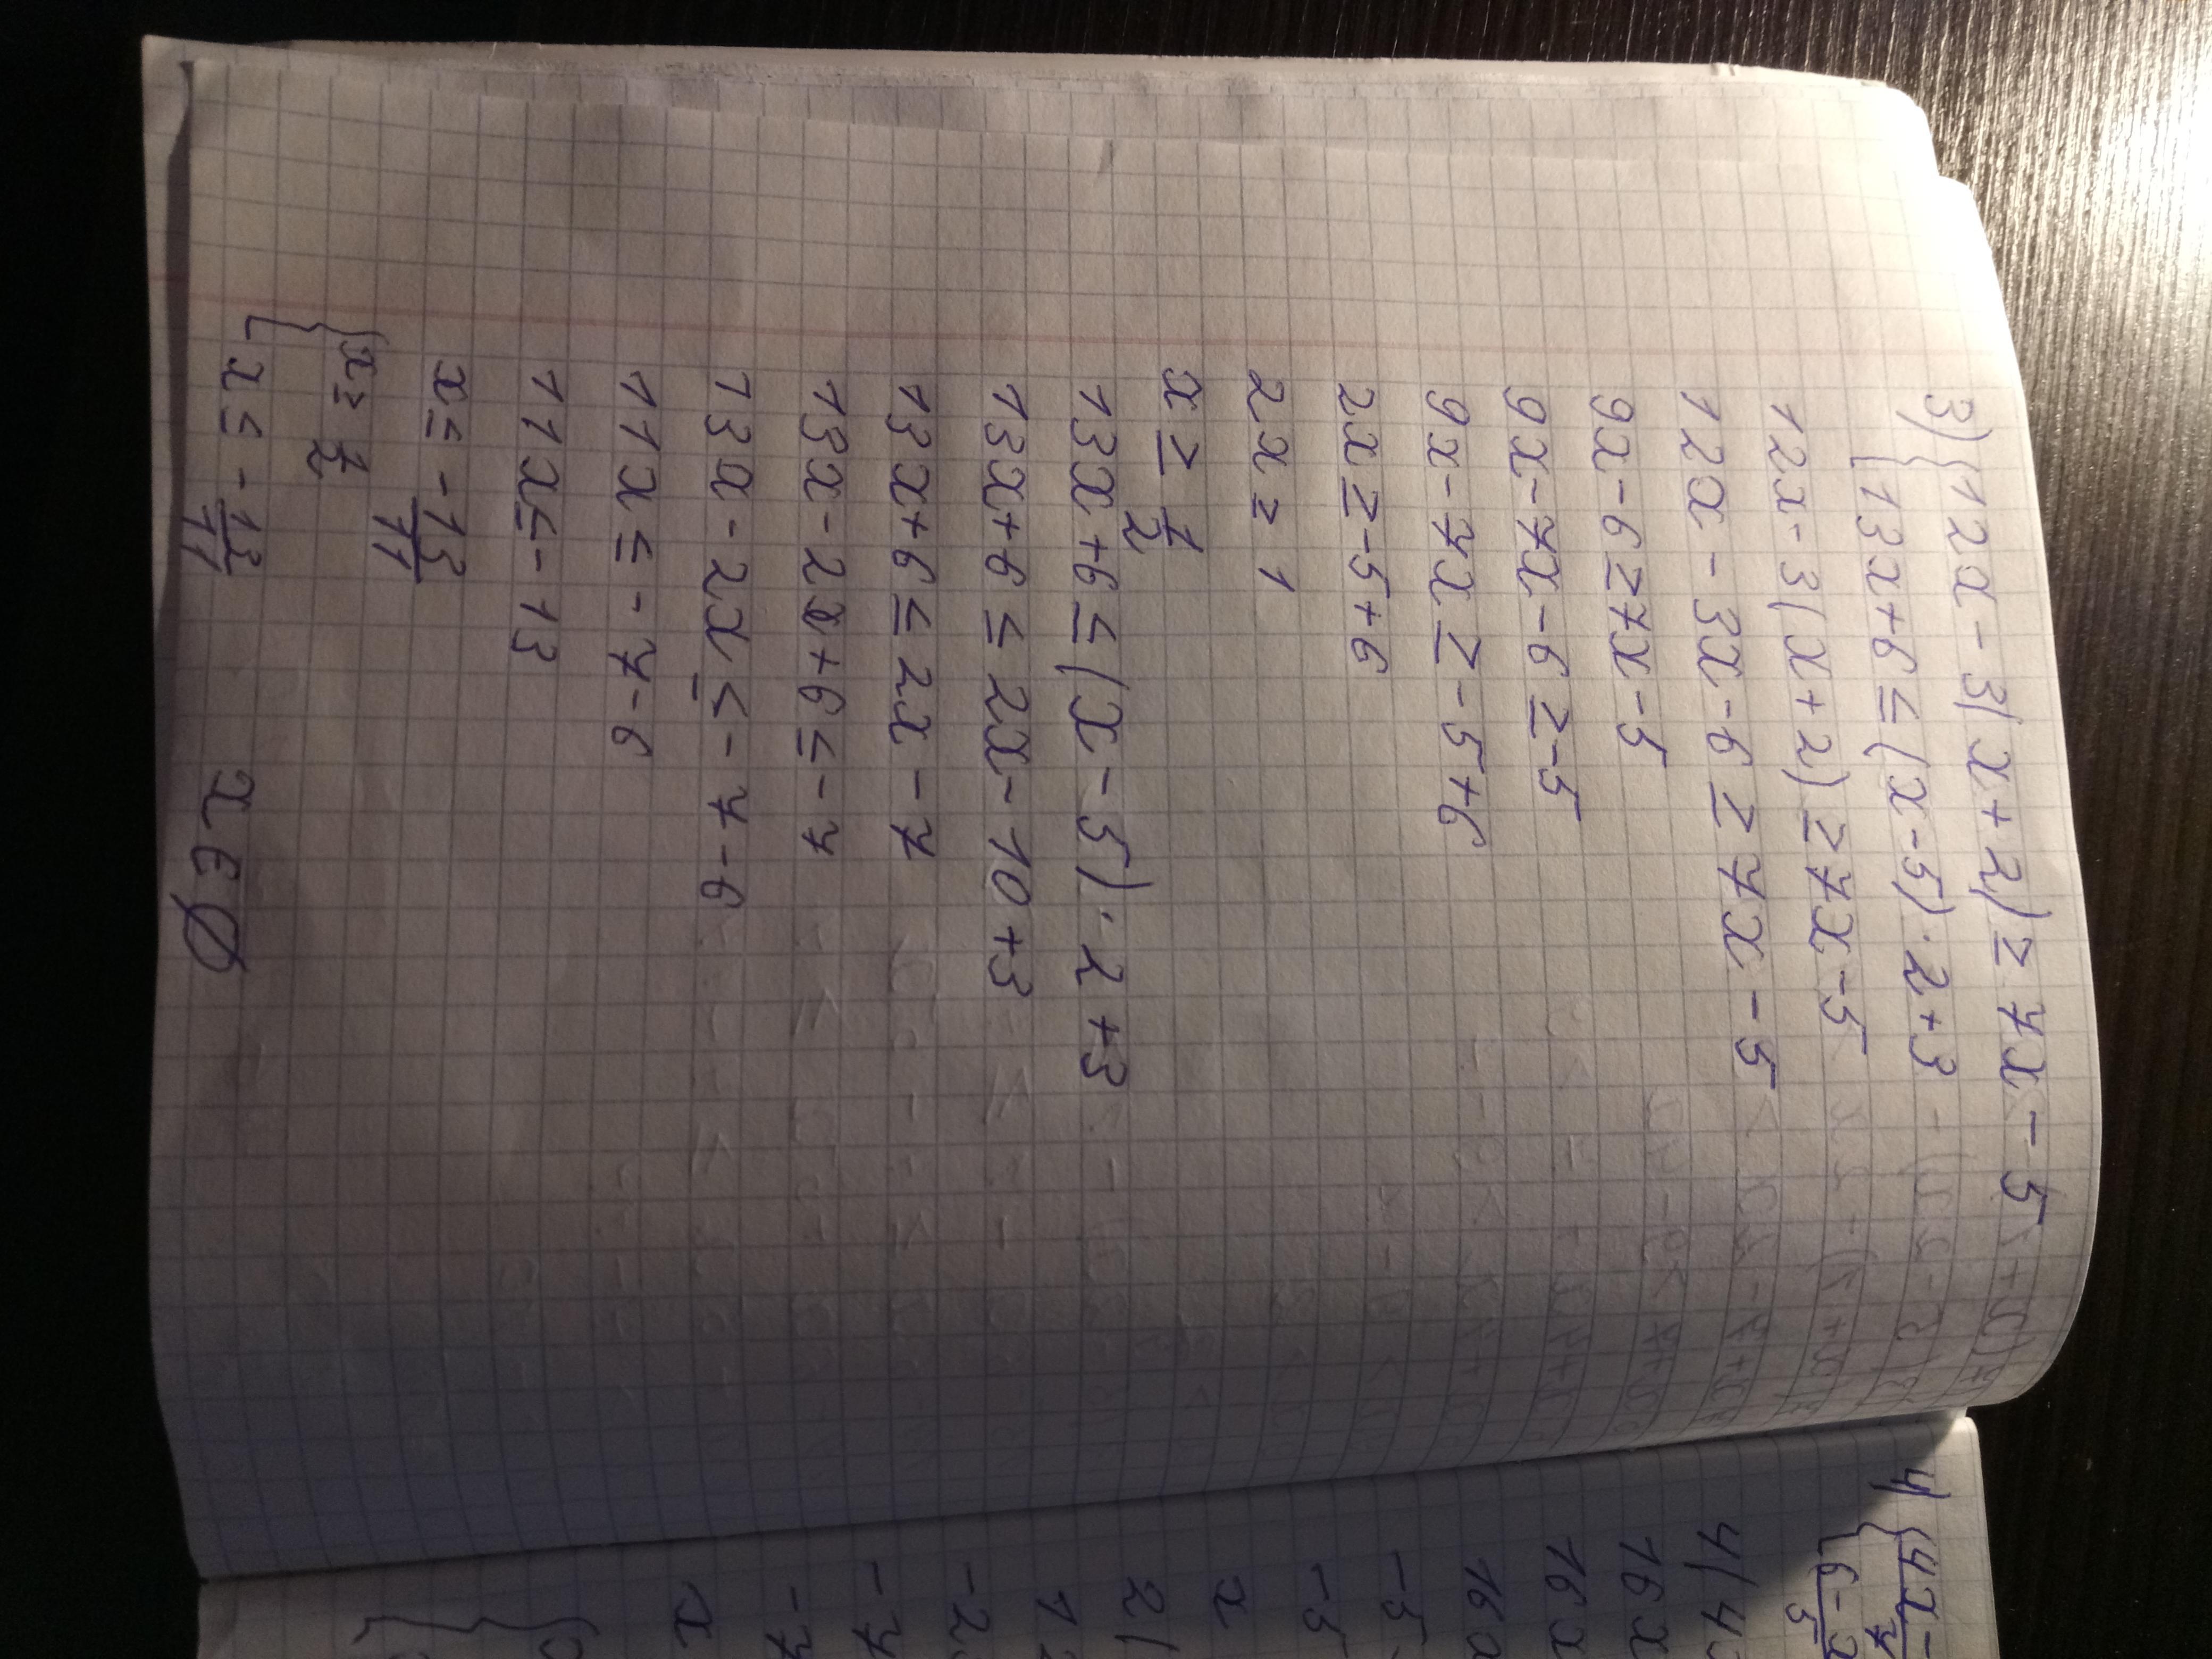 3) { 12x - 3(x + 2) ≥ 7x - 5
{ 13x + 6 ≤ (x - 5) · 2 + 3
12x - 3(x + 2) ≥ 7x - 5
12x - 3x - 6 ≥ 7x - 5
9x - 6 ≥ 7x - 5
9x - 7x - 6 ≥ -5
9x - 7x ≥ -5 + 6
2x ≥ -5 + 6
2x ≥ 1
x ≥ 1/2
13x + 6 ≤ (x - 5) · 2 + 3
13x + 6 ≤ 2x - 10 + 3
13x + 6 ≤ 2x - 7
13x - 2x + 6 ≤ -7
13x - 2x ≤ -7 - 6
11x ≤ -7 - 6
11x ≤ -13
x ≤ -13/11
{ x ≥ 1/2
{ x ≤ -13/11 x ∈ Ø
4) { 4x -
7
{ 6 - x
5
4(4
16x
16x
16
-5
-5
x
2(
12
-2
-7
-7
x
{